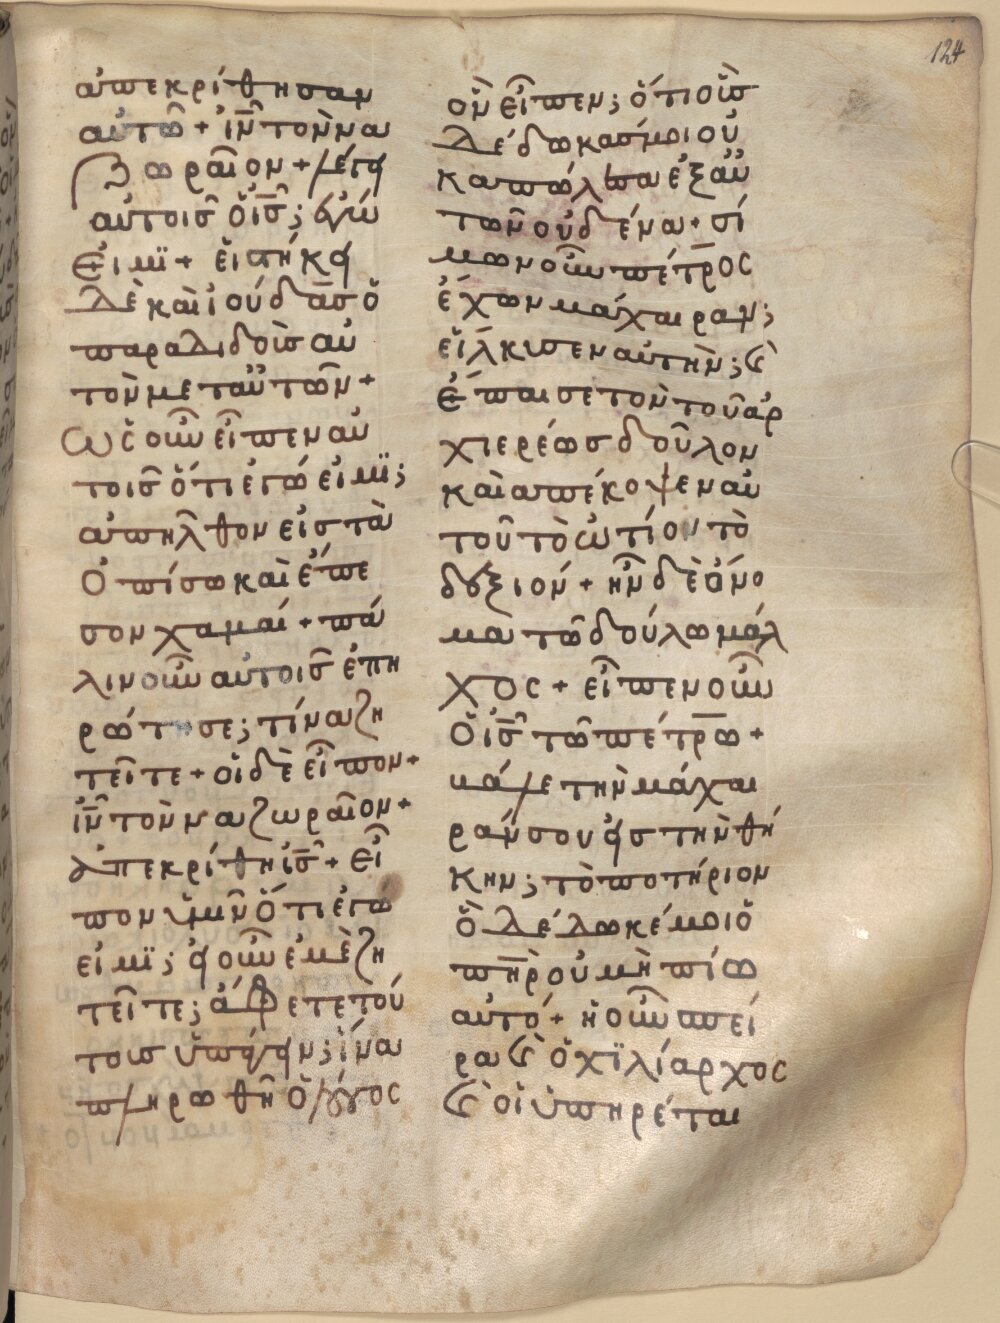 124
ἀπεκρίθησαν
αὐτῶ + ἰν̄ τὸν να
ζωραῖον + λέγει
αὐτοῖς ὁ ις̄ ; ἐγώ
εἰμϊ + εἱστήκει
δὲ καὶ ἰούδας ὁ
παραδιδοὺς αὐ
τὸν μετ αὐτῶν +
ὡς οὖν εἶπεν αὐ
τοῖς ὅτι ἐγώ εἰμϊ ;
ἀπῆλθον εἰς τὰ
ὀπίσω καὶ ἔπε
σον χαμαί + πά
λιν οὖν αὐτοῖς ἐπη
ρώτησε ; τίνα ζη
τεῖτε + οἱ δὲ εἶπον +
ἰν̄ τὸν ναζωραῖον +
ἀπεκρίθη ις̄ + εἶ
πον ὑμῖν ὅτι ἐγώ
εἰμϊ ; εἰ οὖν ἐμὲ ζη
τεῖτε ; ἄφετε τού
τους ὑπάγειν ; ἵνα
πληρωθῆ ὁ λόγος
ὃν εἶπεν ; ὅτι οὓς
δέδωκάς μοι οὐ
κ ἀπώλεσα ἐξ αὐ
τῶν οὐδένα + σί
μων οὖν πέτρ̄ος
ἔχων μάχαιραν ;
εἵλκυσεν αὐτήν ; ϗ
ἔπαισε τὸν τοῦ ἀρ
χιερέως δοῦλον
καὶ ἀπέκοψεν αὐ
τοῦ τὸ ὠτίον τὸ
δεξιόν + ἦν δὲ ὄνο
μα τῶ δούλω μάλ
χος + εἶπεν οὖν
ὁ ις̄ τῶ πέτρ̄ω +
βάλε τὴν μάχαι
ράν σου εἰς τὴν θή
κην ; τὸ ποτήριον
ὃ δέδωκέ μοι ὁ
πη̄ρ οὐ μὴ πίω
αὐτό + ἡ οὖν σπεί
ρα ϗ ὁ χϊλίαρχος
ϗ οἱ ὑπηρέται